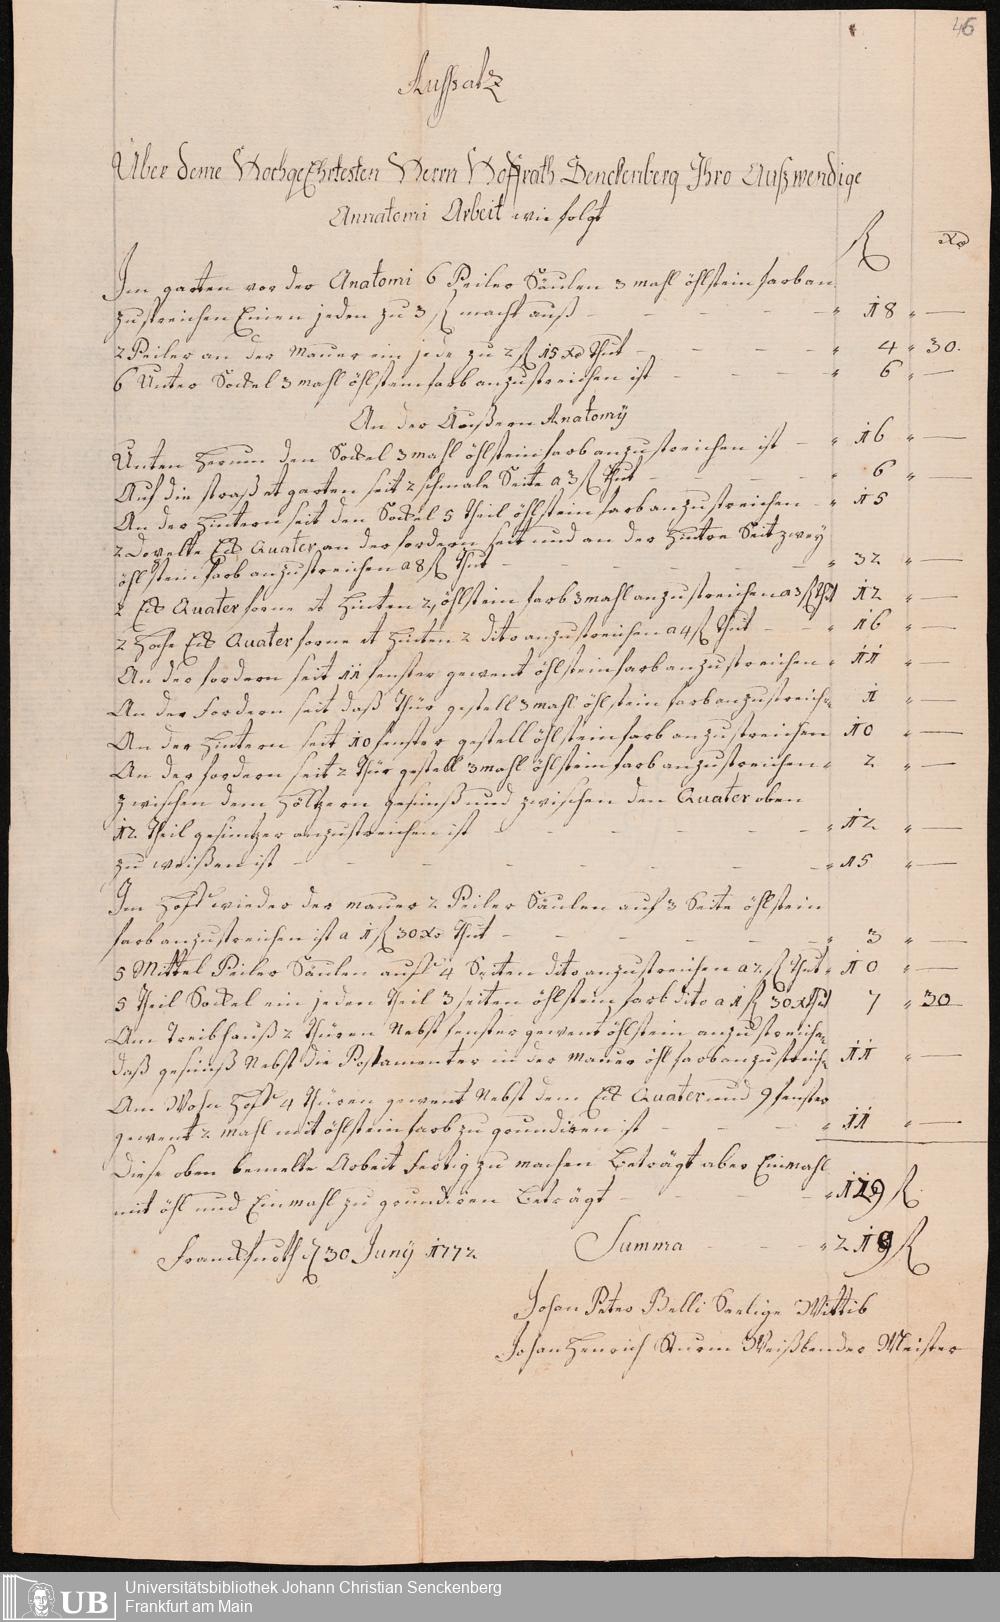 46
Aufsatz
Über deme HochgeEhrtesten Herrn Hoffrath Senckenberg Ihro Außwendige
Annatomi Arbeit wie folgt
fl xr
Im garten vor der Anatomi 6 Peiler Säulen 3 mahl öhlsteinfarb an
zustreichen Einen jeden zu 3 fl macht auß - - - - " 18 " —
2 Peiler an der Mauer ein jede zu 2 fl 15 xr Thut - - - " 4 " 30.
6 Unter Sockel 3 mahl öhlsteinfarb anzustreichen ist - - - " 6 " —
An der Äußern Anatomÿ
Unten herum den Sockel 3 mahl öhlsteinfarb anzustreichen ist - " 16 " —
Auf die straß et garten seit 2 schmale Seite a 3 fl Thut - - - " 6 " —
An der hintern seit den Sockel 5 Theil öhlsteinfarb anzustreichen - " 15
2 Dopelte Eck Quater an der fordern seit und an der hintre Seit zweÿ
öhlsteinfarb anzustreichen a 8 fl Thut - - - - " 32 " —
2 Eck Quater forne et hinten 2, öhlstein farb 3 mahl anzustreichen a 3 fl Thut 12 " —
2 hohe Eck Quater forne et hinten 2 dito anzustreichen a 4 fl Thut - - " 16 " —
An der fordern seit 11 fenster gewent öhlsteinfarb anzustreichen " 11 " —
An der Fordern seit daß Thür gestell 3 mahl öhlstein farb anzustreichen 1 " —
An der hintern seit 10 fenster gestell öhlsteinfarb anzustreichen 10 " —
An der fordern seit 2 Thür gestell 3 mahl öhlstein farb anzustreichen " 2 " —
Zwischen dem höltzern gesimß und zwischen den Quater oben
12 Theil gesimtzer anzustreichen ist - - - - " 12 " —
zu weißen ist - - - - - " 15 " —
Im Hoff wieder der mauer 2 Peiler Säulen auf 3 Seite öhlstein
farb anzustreichen ist a 1 fl 30 xr Thut - - - - " 3 " —
5 Mittel Peiler Säulen auff 4 Seiten dito anzustreichen a 2 fl Thut " 10 " —
5 Theil Sockel ein jeden Theil 3 seiten öhlstein farb dito a 1 fl 30 xr Thut 7 " 30
Am Treibhauß 2 Thüren Nebst fenster gewent öhlstein anzustreichen
daß gesimß Nebst die Postamenter in der mauer öhlfarb anzustreich 11 " —
Am Wohn Hoff 4 Thüren gewent Nebst dem Eck Quater und 9 fenster
gewent 2 mahl mit öhlsteinfarb zu grundiren ist - - - " 11 " —
Diese oben bemelte Arbeit fertig zu machen Beträgt aber Einmahl
mit öhl und Einmahl zu grundiren Beträgt - - - " 119 fl
Summa - - " 219 fl
Franckfurth d 30 Junÿ 1772
Johan Peter Belli Seelige Wittib
Johan Henrich Sturm Weißbender Meister
UB
Universitätsbibliothek Johann Christian Senckenberg
Frankfurt am Main